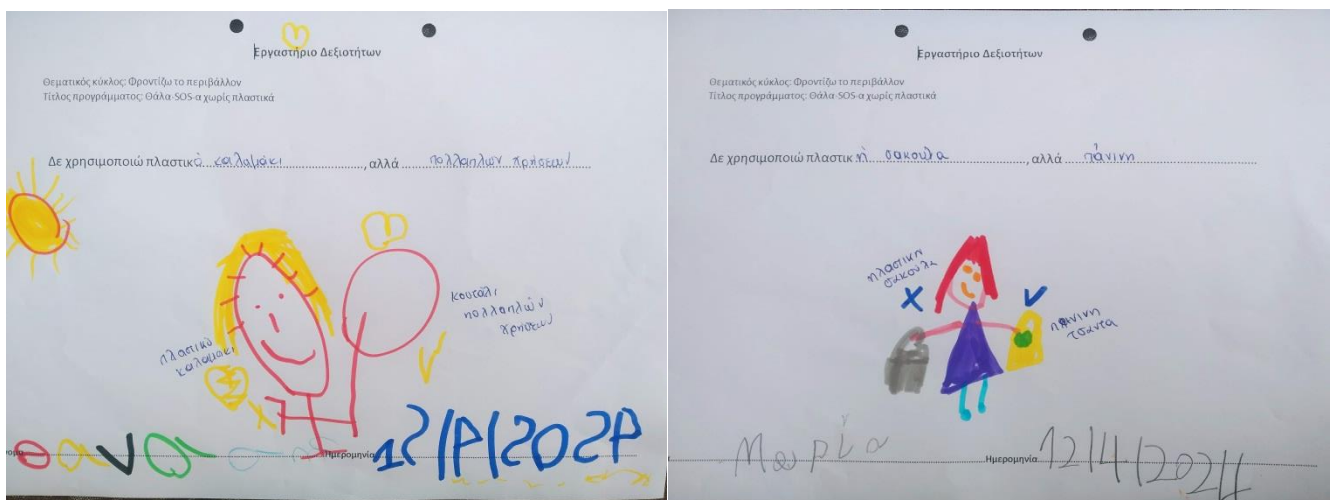 Εργαστήριο Δεξιοτήτων
Θεματικός κύκλος: Φροντίζω το περιβάλλον
Τίτλος προγράμματος: Θάλα-SOS-α χωρίς πλαστικά
Δε χρησιμοποιώ πλαστικό καλαμάκι, αλλά πολλαπλών χρήσεων
κουτάλι
πολλαπλών
χρήσεων
πλαστικό
καλαμάκι
Ημερομηνία 12/4/2024
Εργαστήριο Δεξιοτήτων
Θεματικός κύκλος: Φροντίζω το περιβάλλον
Τίτλος προγράμματος: Θάλα-SOS-α χωρίς πλαστικά
Δε χρησιμοποιώ πλαστικη σακουλα, αλλά πάνινη
πλαστικη
σακούλα
πάνινη
τσάντα
Μαρία Ημερομηνία 12/4/2024